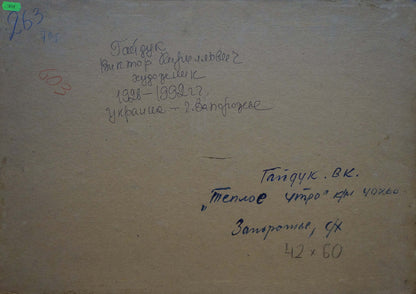 263
603
Гайдук
Виктор Кириллович
художник
1926–1992 гг.
Украина – г. Запорожье
Гайдук. ВК.
„Теплое утро" к/м 40х60
Запорожье, с/х
42 х 60